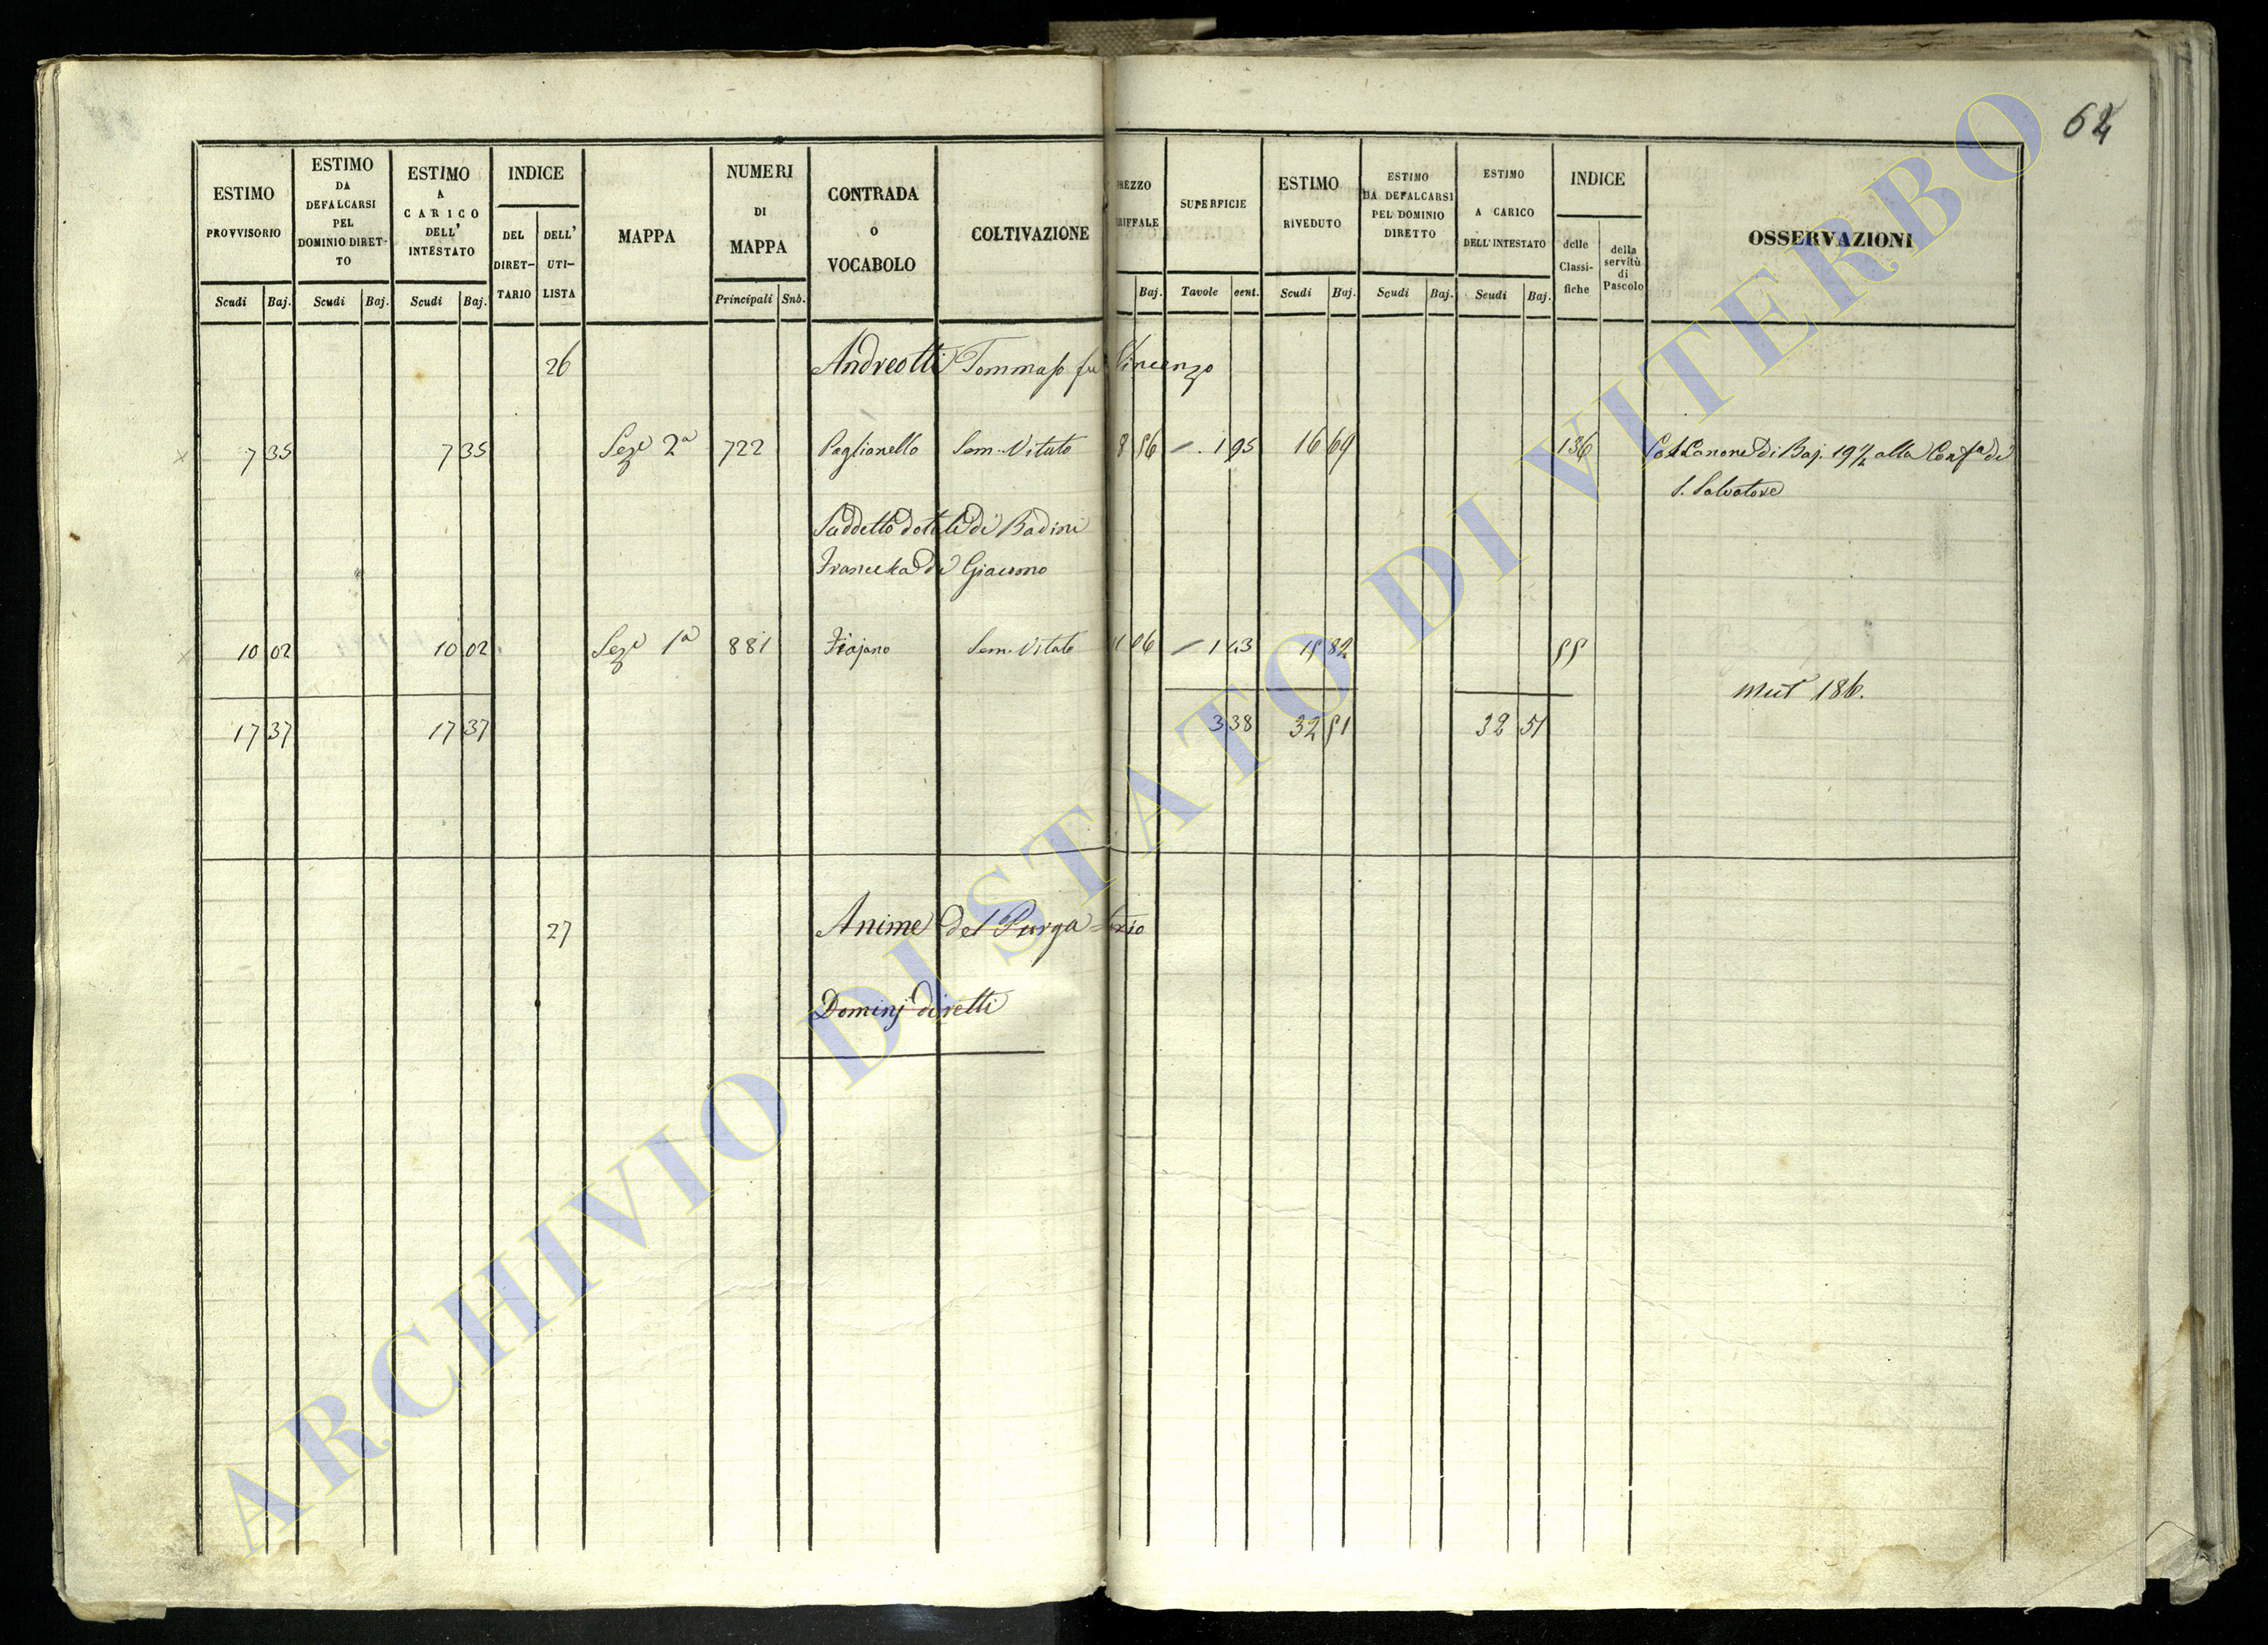 64
ESTIMO PROVVISORIO
Scudi Baj.
ESTIMO DA DEFALCARSI PEL DOMINIO DIRET- TO
Scudi Baj.
ESTIMO A CARICO DELL' INTESTATO
Scudi Baj.
INDICE
DEL DIRET- TARIO
DELL' UTI- LISTA
MAPPA
NUMERI DI MAPPA
Principali Snb.
CONTRADA O VOCABOLO
COLTIVAZIONE
REZZO RIFFALE
Baj.
SUPERFICIE
Tavole cent.
ESTIMO RIVEDUTO
Scudi Baj.
ESTIMO DA DEFALCARSI PEL DOMINIO DIRETTO
Scudi Baj.
ESTIMO A CARICO DELL'INTESTATO
Scudi Baj.
INDICE
delle Classi- fiche
della servitù di Pascolo
OSSERVAZIONI
26 Andreotti Tommaso fu Vincenzo
7 35 7 35 Sez.e 2a 722 Paglianello Sem. Vitato 8 56 1 95 16 69 136 Canone di Baj. 19 1/2 alla Confa di
S. Salvatore
Suddetto dotale di Badini
Francesca di Giacomo
10 02 10 02 Sez.e 1a 881 Fiajano Sem. Vitato 11 06 1 43 15 82 55
Mut 186.
17 37 17 37 3 38 32 51 32 51
27 Anime del Purga=torio
Dominj diretti
ARCHIVIO DI STATO DI VITERBO